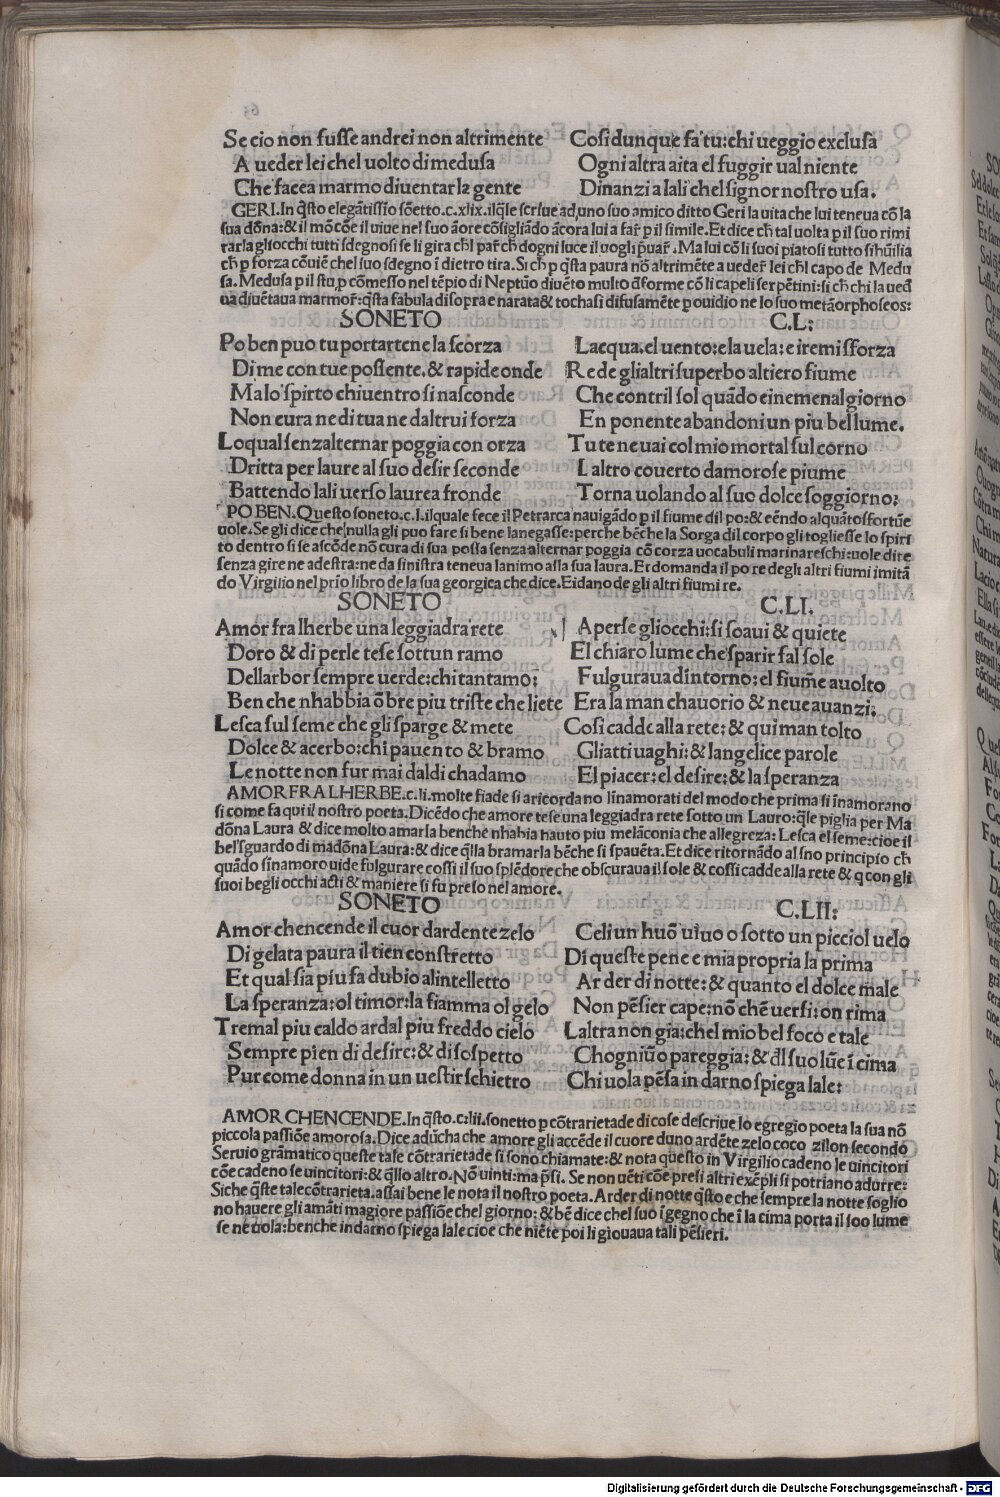 Se cio non fusse andrei non altrimente
A ueder lei chel uolto di medusa
Che facea marmo diuentar la gente
Cosi dunque fa tu: chi ueggio exclusa
Ogni altra aita el fuggir ual niente
Dinanzi a lali chel signor nostro usa.
GERI. In q̄sto elegātissio sōetto .c. xlix. ilq̄le scriue ad uno suo amico ditto Geri la uita che lui teneua cō la
sua dōna: & il mō cōe il uiue nel suo āore cōsigliādo ācora lui a far p il simile. Et dice ch̄ tal uolta p il suo rimi
rar la gliocchi tutti sdegnosi se li gira
ch̄ p forza cōuiē chel suo sdegno ī dietro tira. Si ch̄ p q̄sta paura nō altrimēte a ueder lei ch̄l capo de Medu
sa. Medusa p il stupro cōmesso nel tēpio di Neptūo diuēto multo d̄forme cō li capeli serpētini: si ch̄ chi la ued̄
ua diuētaua marmor: q̄sta fabula di sopra e narata & tochasi difusamēte p ouidio ne lo suo metāorphoseos:
SONETO C.L:
Po ben puo tu portartene la scorza
Di me con tue possente. & rapide onde
Ma lo spirto chiuentro si nasconde
Non cura ne di tua ne daltrui forza
Loqual senzalternar poggia con orza
Dritta per laure al suo desir seconde
Battendo lali uerso laurea fronde
Lacqua. el uento: e la uela: e iremi sforza
Re de glialtri superbo altiero fiume
Che contril sol quādo eine menal giorno
En ponente abandoni un piu bel lume.
Tu tene uai col mio mortal sul corno
Laltro couerto damorose piume
Torna uolando al suo dolce soggiorno:
PO BEN. Questo soneto .c.l. ilquale fece il Petrarca nauigādo p il fiume dil po: & eēndo alquāto sfortūe
uole. Se gli dice che nulla gli puo fare si bene lanegasse: perche bēche la Sorga dil corpo gli togliesse lo spiri
to dentro si se ascōde nō cura di sua possa senza alternar poggia cō corza uocabuli marinareschi: uole dire
senza gire ne adestra: ne da sinistra teneua lanimo alla sua laura. Et domanda il po re degli altri fiumi imitā
do Virgilio nel prīo libro de la sua georgica che dice. Eidano de gli altri fiumi re.
SONETO C.LI.
Amor fra lherbe una leggiadra rete
Doro & di perle tese sottun ramo
Dellarbor sempre uerde: chi tantamo:
Ben che nhabbia ōbre piu triste che liete
Lesca sul seme che gli sparge & mete
Dolce & acerbo: chi pauento & bramo
Le notte non fur mai dal di chadamo
Aperse gliocchi: si soaui & quiete
El chiaro lume che sparir fal sole
Fulguraua dintorno: el fium̄e auolto
Era la man chauorio & neue auanzi.
Cosi cadde alla rete: & qui man tolto
Gliatti uaghi: & langelice parole
El piacer: el desire: & la speranza
AMOR FRA LHERBE .c.li. molte fiade si aricorda no lināmorati del modo che prima si īnamorano
si come fa qui il nostro poeta. Dicēdo che amore tese una leggiadra rete sotto un Lauro: q̄le piglia per Ma
dōna Laura & dice molto amarla benche nhabia hauto piu melāconia che allegreza: Lesca el seme: cioe il
bel sguardo di madōna Laura: & dice q̄lla bramarla bēche si spauēta. Et dice ritornādo al sno principio ch̄
quādo sinamoro uide fulgurare cossi il suo splēdore che obscuraua il sole & cossi cadde alla rete & q con gli
suoi begli occhi acti & maniere si fu preso nel amore.
SONETO C.LII:
Amor chencende il cuor dardente zelo
Di gelata paura il tien constretto
Et qual sia piu fa dubio alintelletto
La speranza: ol timor: la fiamma ol gelo
Tremal piu caldo ardal piu freddo cielo
Sempre pien di desire: & di sospetto
Pur come donna in un uestir schietro
Celi un huō uiuo o sotto un picciol uelo
Di queste pene e mia propria la prima
Arder di notte: & quanto el dolce male
Non pēsier cape: nō chē uersi: on rima
Laltra non gia: chel mio bel foco e tale
Chogniuō pareggia: & d̄l suo lūe ī cima
Chi uola pēsa in darno spiega lale:
AMOR CHENCENDE. In q̄sto .c.lii. sonetto p cōtrarietade di cose descriue lo egregio poeta la sua nō
piccola passiōe amorosa. Dice adūcha che amore gli accēde il cuore duno ardēte zelo coco zilon secondo
Seruio grāmatico queste tale cōtrarietade si sono chiamate: & nota questo in Virgilio cadeno le uincitori
cōe cadeno se uincitori: & q̄llo altro. Nō uinti: ma p̄si. Se non uēti cōe presi altri exēpli si potriano adurre:
Siche q̄ste tale cōtrarieta. assai bene le nota il nostro poeta. Arder di notte q̄sto e che sempre la notte soglio
no hauere gli amāti magiore passiōe chel giorno: & bē dice chel suo īgegno che ī la cima porta il soo lume
se ne uola: benche indarno spiega lale cioe che niēte poi li giouaua tali pēsieri.
Digitalisierung gefördert durch die Deutsche Forschungsgemeinschaft - DFG